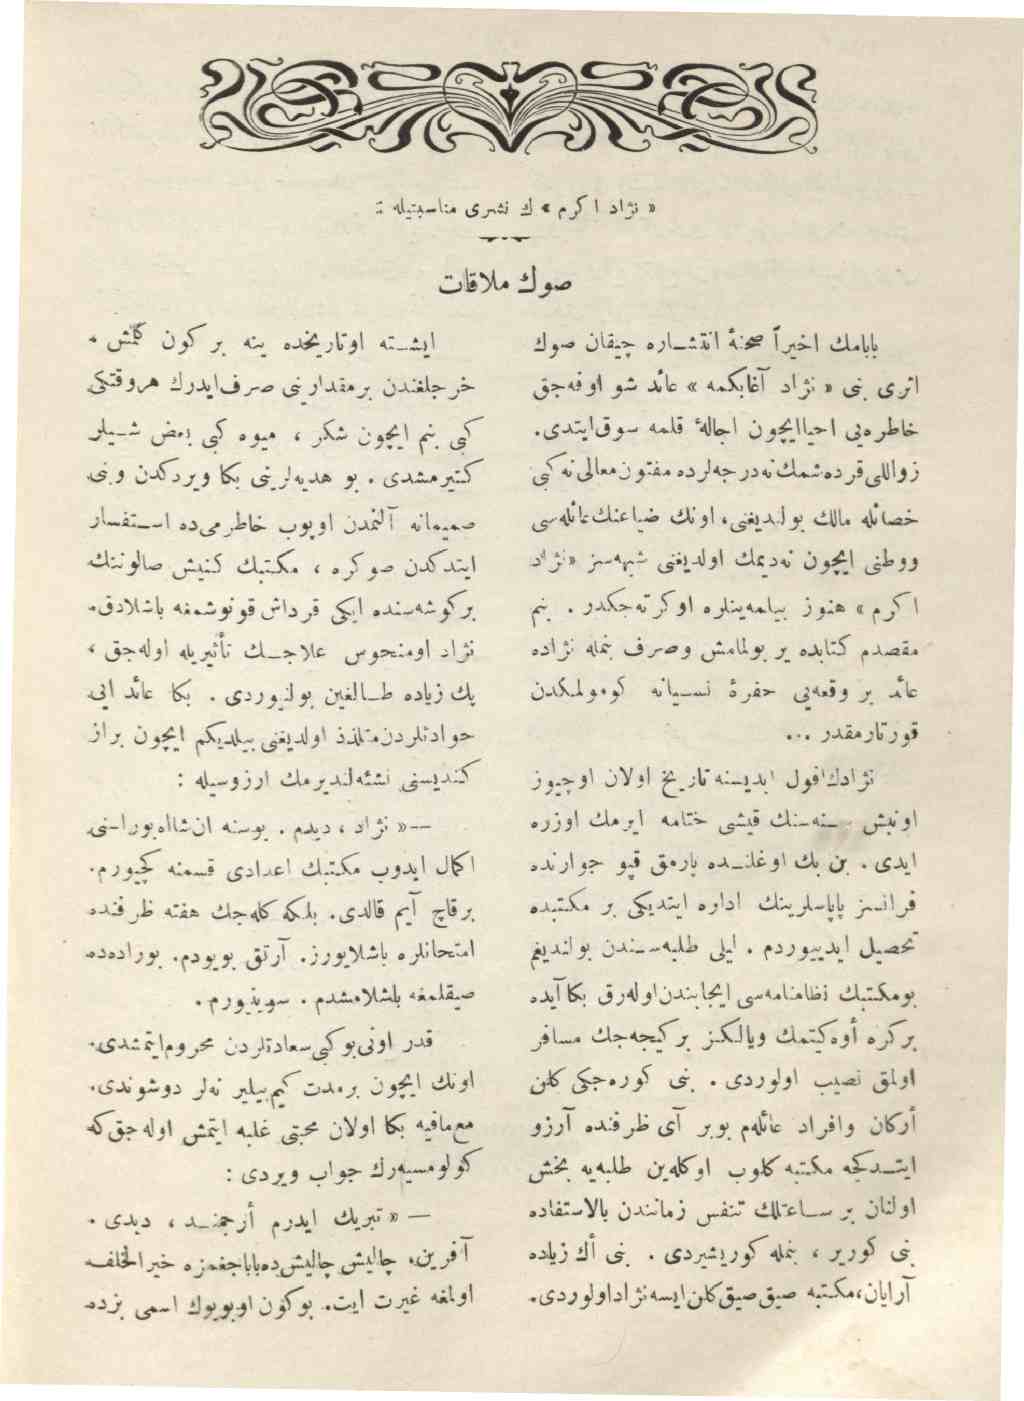 « نژاد اكرم » ك نشری مناسبتیله :
صوك ملاقات
بابامك اخیراً صحنهٔ انتشاره چیقان صوك
اثری بنی « نژاد آغابكمه » عائد شو اوفه‌جق
خاطره‌یی احیا ایچون اجالهٔ قلمه سوق ایتدی.
زواللی قرده‌شمك نه درجه‌لرده مفتون معالی نه كبی
خصائله مالك بولندیغنی، اونك ضیاعنك عائله‌سی
ووطنی ایچون نه دیمك اولدیغنی شبهه‌سز «نژاد
اكرم» هنوز بیلمه‌ینلره اوكرته‌جكدر . بنم
مقصدم كتابده یر بولمامش وصرف بنمله نژاده
عائد بر وقعه‌یی حفرهٔ نسیانه كومولمكدن
قورتارمقدر ...
نژادك افول ابدیسنه تاریخ اولان اوچیوز
اونبش سنه‌سنك قیشی ختامه ایرمك اوزره
ایدی . بن بك اوغلنده پارمق قپو جوارنده
فرانسز پاپاسلرینك اداره ایتدیكی بر مكتبده
تحصیل ایدییوردم . لیلی طلبه‌سندن بولندیغم
بومكتبك نظامنامه‌سی ایجابندن اوله‌رق بكا آیده
بركره أوه كیتمك ویالكز بر كیجه‌جك مسافر
اولمق نصیب اولوردی . بنی كوره‌جكی كلن
أركان وافراد عائله‌م بوبر آی ظرفنده آرزو
ایتدكجه مكتبه كلوب اوكله‌ین طلبه‌یه بخش
اولنان بر ساعتلك تنفس زمانندن بالاستفاده
بنی كوریر ، بنمله كوریشیردی . بنی أك زیاده
آرایان، مكتبه صیق صیق كلن ایسه نژاد اولوردی.
ایشته اوتاریخده ینه بر كون كلمش ،
خرجلغندن بر مقدارینی صرف ایدرك هروقتكی
كبی بنم ایچون شكر ، میوه كبی بعض شیلر
كتیرمشدی . بو هدیه‌لرینی بكا ویردكدن وبنی
صمیمانه آلنمدن اوپوب خاطرمی‌ده استفسار
ایتدكدن صوكره ، مكتبك كنیش صالوننك
بر كوشه‌سنده ایكی قرداش قونوشمغه باشلادق.
نژاد اومنحوس علاجك تأثیریله اوله‌جق ،
پك زیاده طالغین بولنیوردی . بكا عائد ایی
حوادثلردن متلذذ اولدیغنی بیلدیكم ایچون براز
كندیسنی نشئه‌لندیرمك آرزوسیله :
— « نژاد ، دیدم . بوسنه ان‌شاالله بوراسنی
اكمال ایدوب مكتبك اعدادی قسمنه كچیورم.
برقاچ آیم قالدی. بلكه كله‌جك هفته ظرفنده
امتحانلره باشلایورز. آرتق بویودم. بوراده‌ده
صیقلمغه باشلامشدم . سوینیورم .
قدر اونی بو كبی سعادتلردن محروم ایتمشدی.
اونك ایچون برمدت كیم بیلیر نه‌لر دوشوندی.
مع‌مافیه بكا اولان محبتی غلبه ایتمش اوله‌جق كه
كولومسیه‌رك جواب ویردی :
— « تبریك ایدرم أرجمند ، دیدی .
آفرین، چالیش چالیش ده باباجغمزه خیرالخلف
اولمغه غیرت ایت. بوكون اوبویوك اسمی بزده